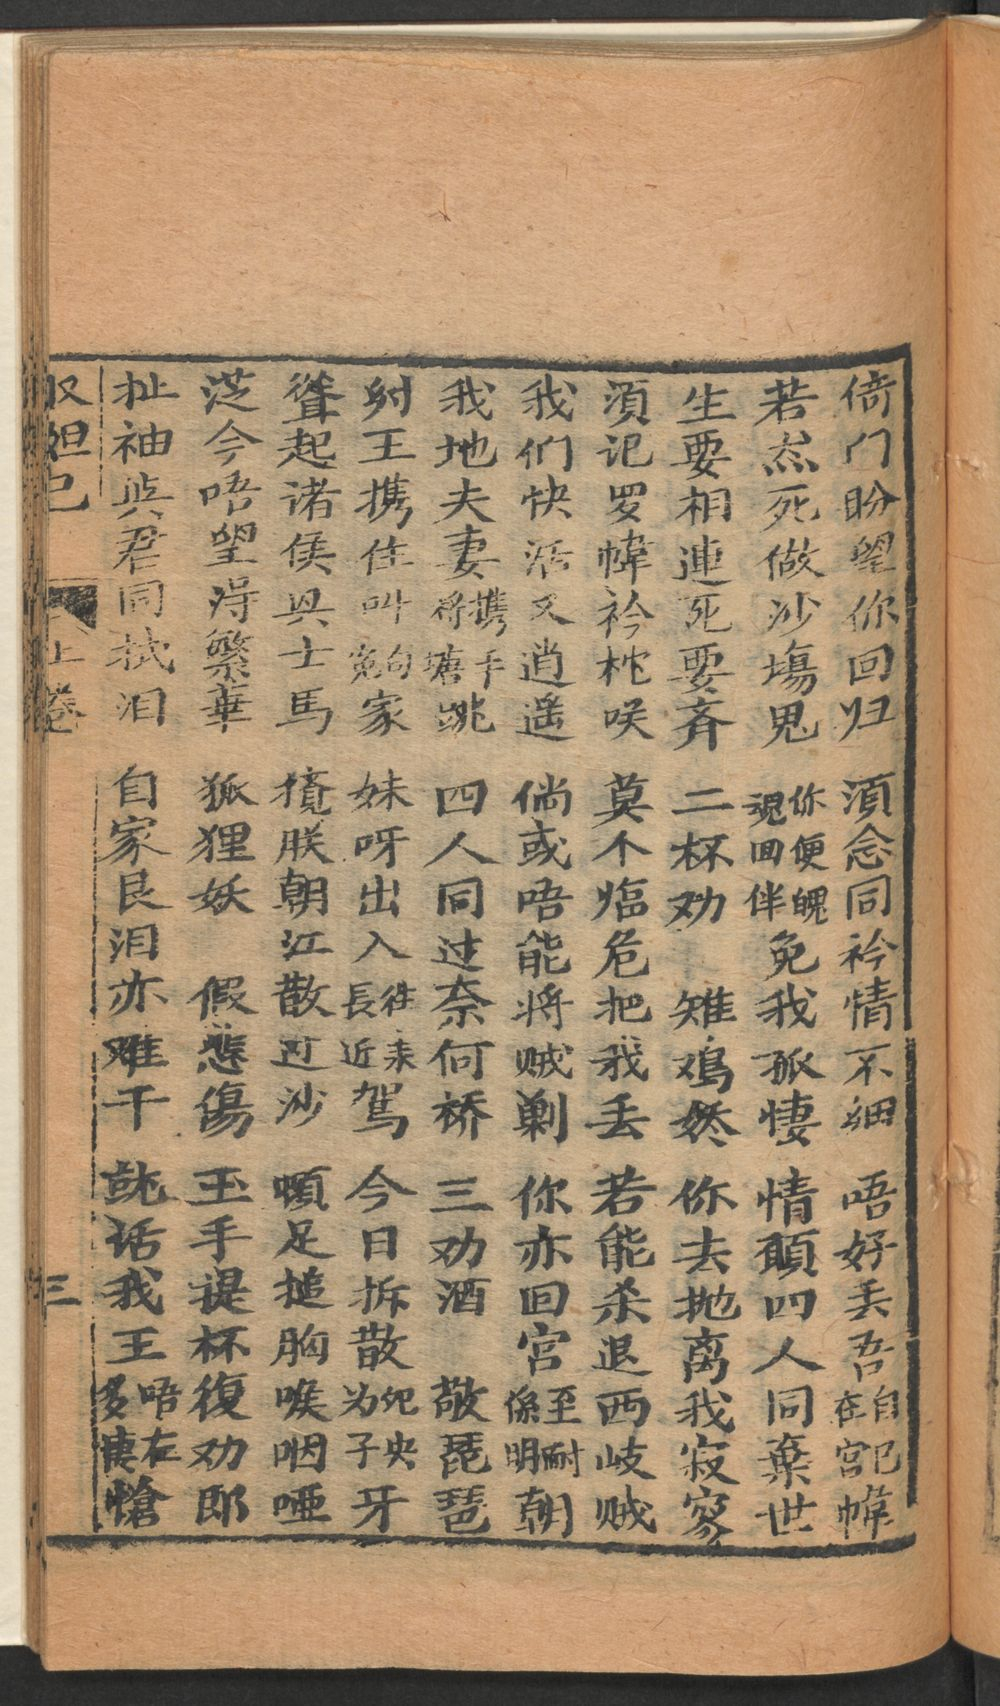 倚门盼望你回归　湏念同衿情不细　唔好丢吾自己在宫幃
若然死做沙塲鬼　你便魄魂回伴免我孤悽　情願四人同棄世
生要相連死要斉　二杯劝　雉鸡然　你去抛离我寂寥
湏记罗幃衿枕咲　莫不临危把我丢　若能杀退西岐贼
我们快活又逍遥　倘或唔能将贼剿　你亦回宫至係耐明朝
我地夫妻携手将塘跳　四人同过奈何桥　三劝酒　敬琵琶
射王携住叫句寃家　妹呀出入往来長近驾　今日拆散死为央子牙
聳起诸侯具士馬　攪朕朝江散过沙　頓足搥胸喉咽哑
茫今唔望淂繁華　狐狸妖　假悲傷　玉手提杯復劝郎
扯袖与君同拭泪　自家艮泪亦难干　訛话我王唔在多悽愴
妲己　上卷　三